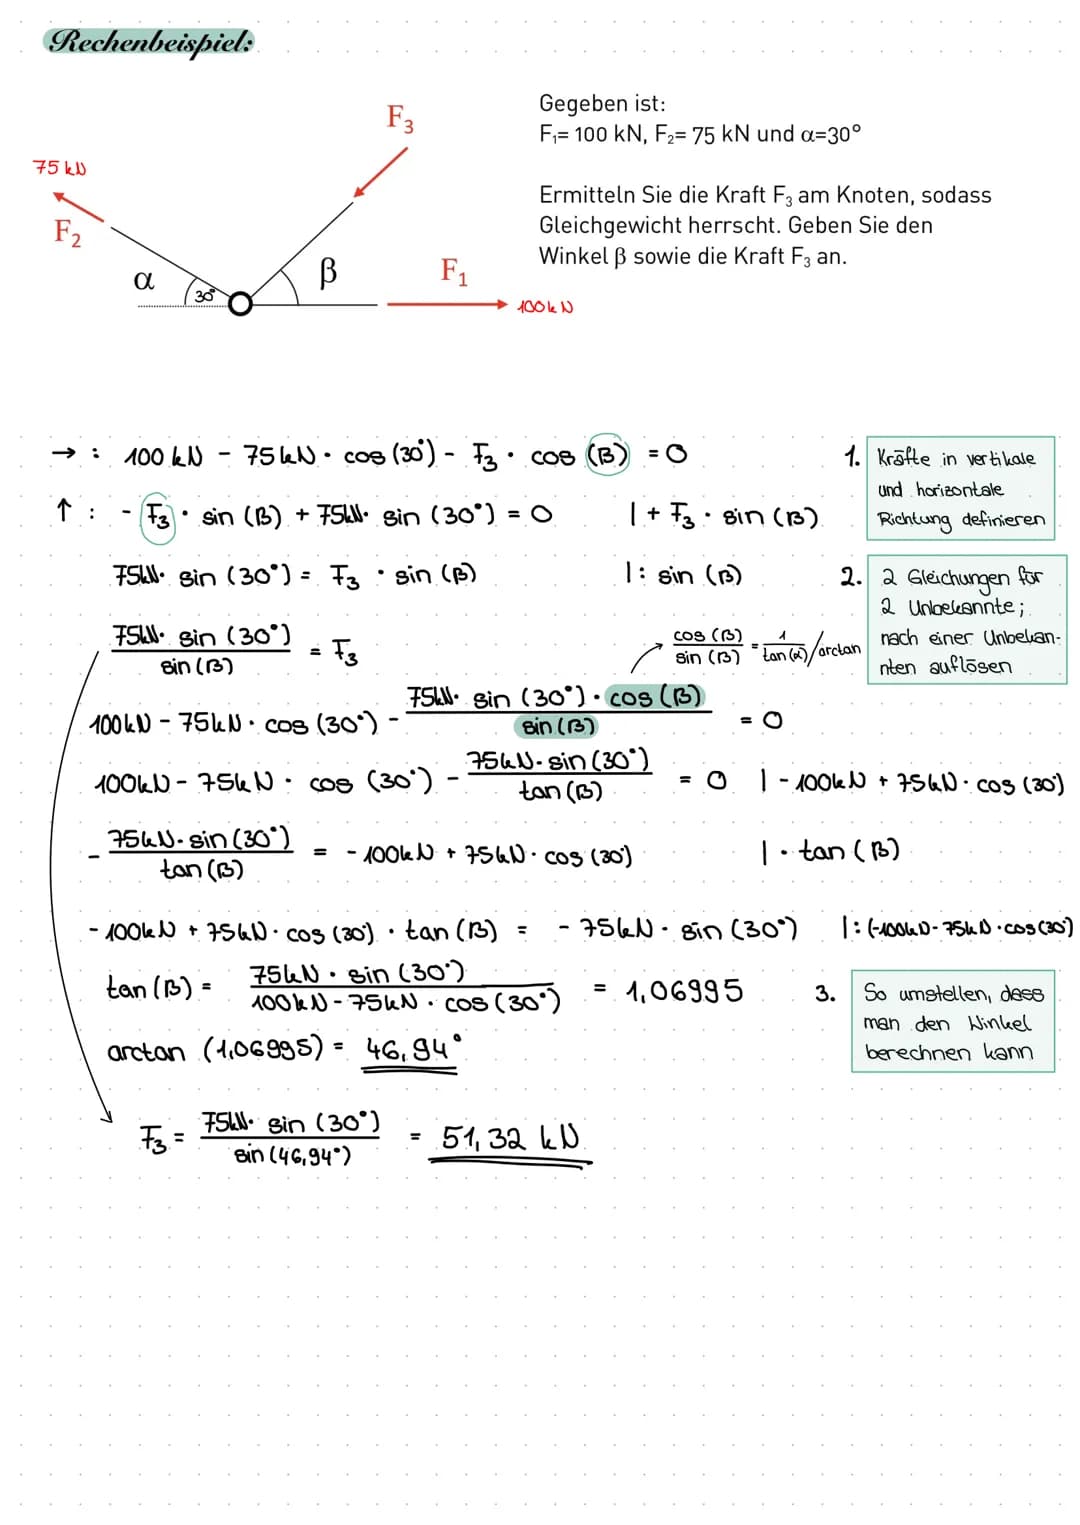 Rechenbeispiel:
Gegeben ist:
F₁= 100 kN, F₂= 75 kN und α=30°
Ermitteln Sie die Kraft F₃ am Knoten, sodass
Gleichgewicht herrscht. Geben Sie den
Winkel β sowie die Kraft F₃ an.
F₃
75 kN
F₂
α
30°
β
F₁
100kN
→ : 100 kN - 75kN · cos (30°) - F₃ · cos (β) = 0
1. Kräfte in vertikale
und horizontale
Richtung definieren
↑ : - F₃ · sin (β) + 75kN · sin (30°) = 0 | + F₃ · sin (β)
75kN · sin (30°) = F₃ · sin (β) | : sin (β)
2. 2 Gleichungen für
2 Unbekannte;
nach einer Unbekan-
nten auflösen
75kN · sin (30°) / sin (β) = F₃
→ cos (β) / sin (β) = 1 / tan (α) / arctan
100kN - 75kN · cos (30°) - 75kN · sin (30°) · cos (β) / sin (β) = 0
100kN - 75kN · cos (30°) - 75kN · sin (30°) / tan (β) = 0 | - 100kN + 75kN · cos (30°)
- 75kN · sin (30°) / tan (β) = - 100kN + 75kN · cos (30°) | · tan (β)
- 100kN + 75kN · cos (30°) · tan (β) = - 75kN · sin (30°) | : (-100kN - 75kN · cos (30°)
tan (β) = 75kN · sin (30°) / 100kN - 75kN · cos (30°) = 1,06995
3. So umstellen, dass
man den Winkel
berechnen kann
arctan (1,06995) = 46,94°
F₃ = 75kN · sin (30°) / sin (46,94°) = 51,32 kN